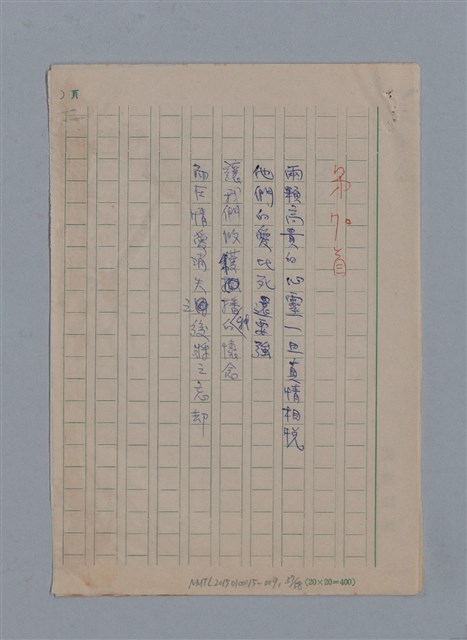 ）頁
第70首
兩顆高貴的心靈一旦真情相悅
他們的愛比死還要強
讓我們收穫播種的懷念
而在情愛消失之後將之忘却
(20×20=400)